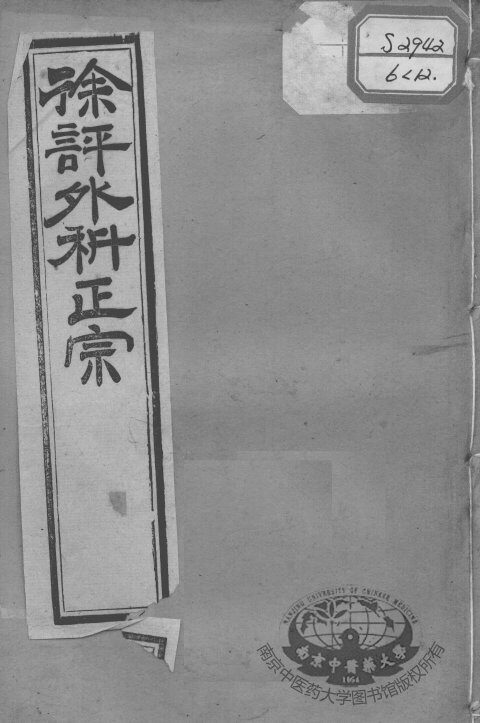 徐評外科正宗
S2942
6<12.
NANJING UNIVERSITY OF CHINESE MEDICINE
南京中醫藥大學
1954
南京中医药大学图书馆版权所有